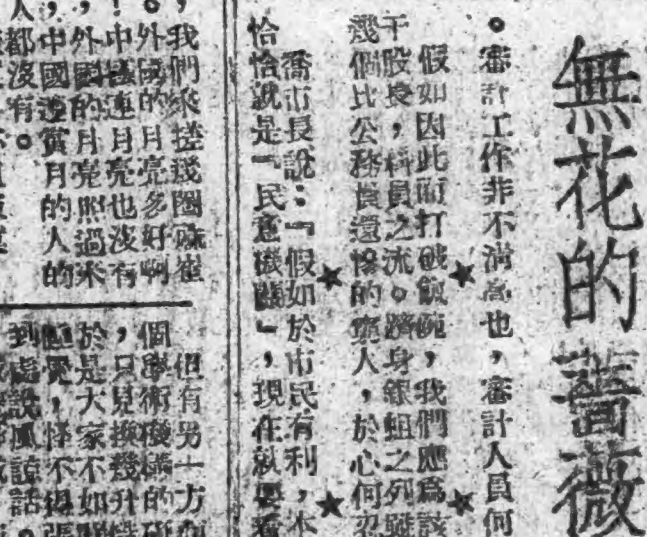 無花的薔薇
。審計工作非不清高也，審計人員何
假如因此而打破飯碗，我們應爲該
干股長，科員之流。躋身銀蛆之列
幾個比公務員還慘的窮人，於心何忍
喬市長說：「假如於市民有利，本
恰恰就是「民意機關」，現在就要看
我們來搓幾圈麻雀
。外國的月亮多好啊
！中國連月亮也沒有
，外國的月亮照過來
，中國賞月的人的
人都沒有。
但有另一方面
個學術機構的研
，只見換幾升
於是大家不如
，怪不得張
到處說風諒話。